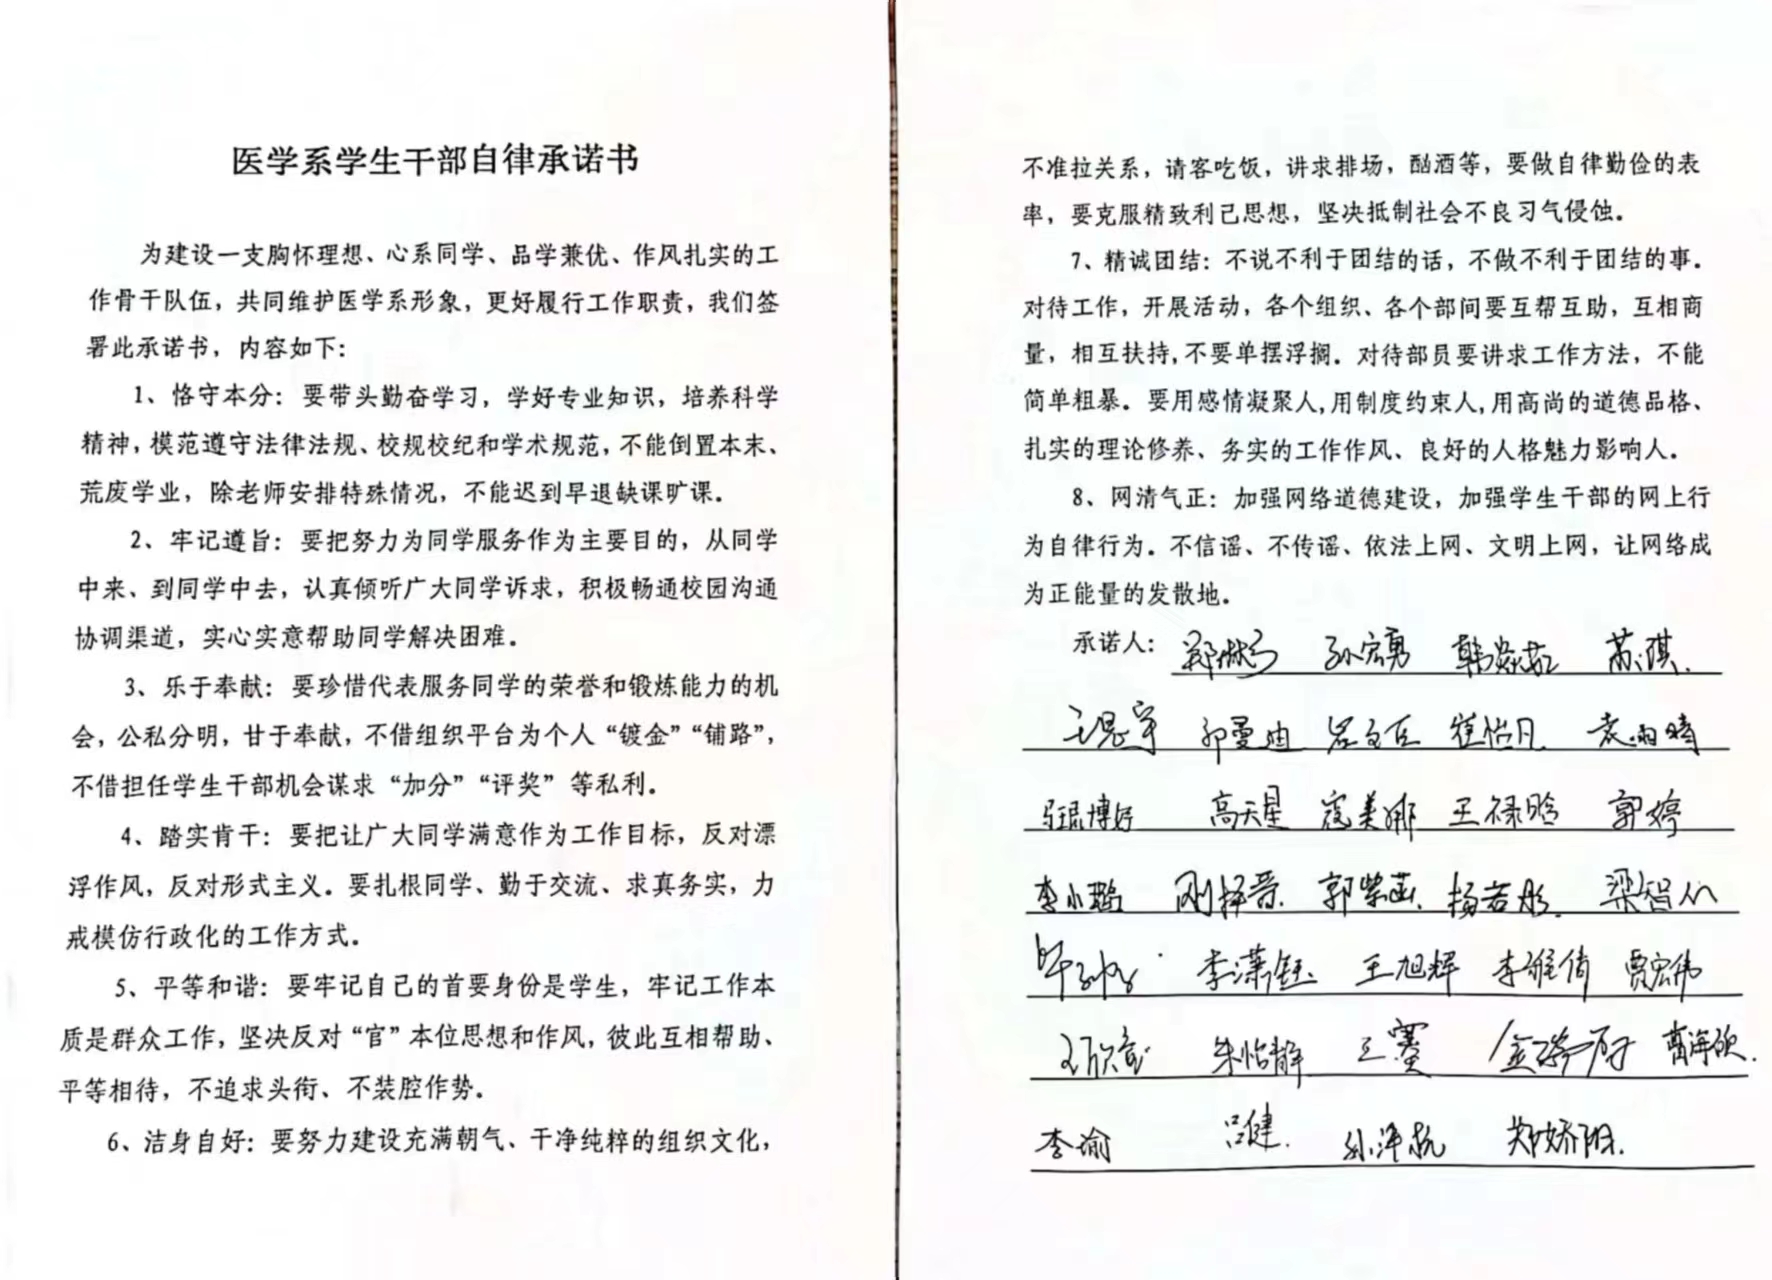 医学系学生干部自律承诺书
为建设一支胸怀理想、心系同学、品学兼优、作风扎实的工
作骨干队伍，共同维护医学系形象，更好履行工作职责，我们签
署此承诺书，内容如下：
1、恪守本分：要带头勤奋学习，学好专业知识，培养科学
精神，模范遵守法律法规、校规校纪和学术规范，不能倒置本末、
荒废学业，除老师安排特殊情况，不能迟到早退缺课旷课。
2、牢记遵旨：要把努力为同学服务作为主要目的，从同学
中来、到同学中去，认真倾听广大同学诉求，积极畅通校园沟通
协调渠道，实心实意帮助同学解决困难。
3、乐于奉献：要珍惜代表服务同学的荣誉和锻炼能力的机
会，公私分明，甘于奉献，不借组织平台为个人“镀金”“铺路”，
不借担任学生干部机会谋求“加分”“评奖”等私利。
4、踏实肯干：要把让广大同学满意作为工作目标，反对漂
浮作风，反对形式主义。要扎根同学、勤于交流、求真务实，力
戒模仿行政化的工作方式。
5、平等和谐：要牢记自己的首要身份是学生，牢记工作本
质是群众工作，坚决反对“官”本位思想和作风，彼此互相帮助、
平等相待，不追求头衔、不装腔作势。
6、洁身自好：要努力建设充满朝气、干净纯粹的组织文化，
不准拉关系，请客吃饭，讲求排场，酗酒等，要做自律勤俭的表
率，要克服精致利己思想，坚决抵制社会不良习气侵蚀。
7、精诚团结：不说不利于团结的话，不做不利于团结的事。
对待工作，开展活动，各个组织、各个部间要互帮互助，互相商
量，相互扶持，不要单摆浮搁。对待部员要讲求工作方法，不能
简单粗暴。要用感情凝聚人，用制度约束人，用高尚的道德品格、
扎实的理论修养、务实的工作作风、良好的人格魅力影响人。
8、网清气正：加强网络道德建设，加强学生干部的网上行
为自律行为。不信谣、不传谣、依法上网、文明上网，让网络成
为正能量的发散地。
承诺人： 孙宏勇 苏琪
郭曼迪 崔怡凡 袁雨晴
高天星 寇美娜 王禄晗 郭婷
李小璐 郭紫菡 杨若彤
李潇钰 王旭辉 李雅倩 贾宏伟
朱怡静 王赛
李瑜 吕健 孙泽杭 郑娇阳